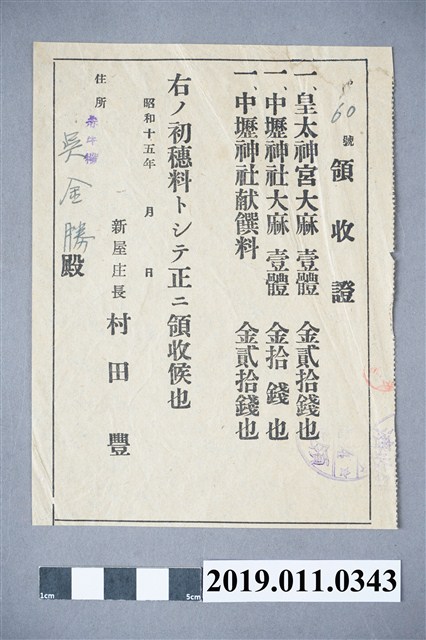 60 號
領收證
一、皇太神宮大麻 壹體 金貳拾錢也
一、中壢神社大麻 壹體 金拾錢也
一、中壢神社献饌料 金貳拾錢也
右ノ初穗料トシテ正ニ領收候也
昭和十五年 月 日
新屋庄長 村田豐
住所
吳金勝殿
1cm 5cm
2019.011.0343